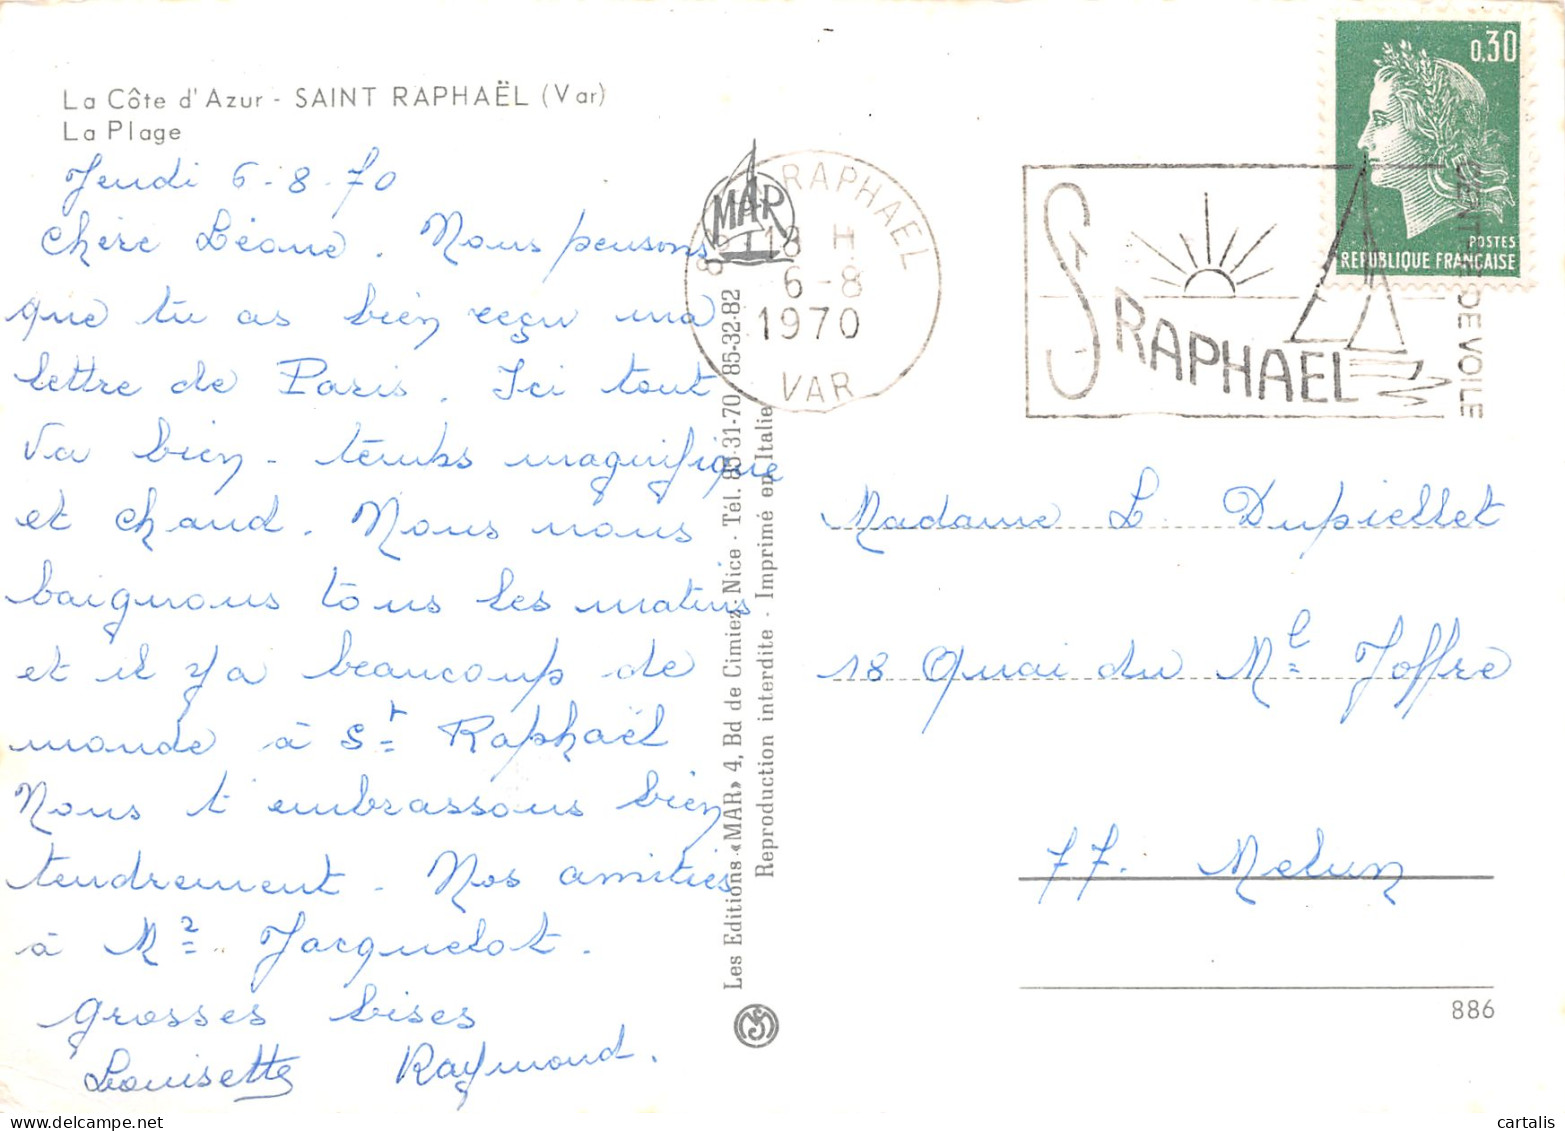 La Côte d'Azur - SAINT RAPHAËL (Var)
La Plage
Jeudi 6-8-70
Chère Léone. Nous pensons
que tu as bien reçu ma
lettre de Paris. Ici tout
va bien - temps magnifique
et chaud. Nous nous
baignons tous les matins
et il y a beaucoup de
monde à St Raphaël
Nous t'embrassons bien
tendrement. Nos amitiés
à Me Jacquelot.
grosses bises
Louisette Raymond.
Les Editions «MAR» 4, Bd de Cimiez-Nice - Tél. 85-31-70 85-32-82
Reproduction interdite - Imprimé en Italie
MAR
RAPHAEL
18 H
6-8
1970
VAR
St RAPHAEL
DE VOILE
0,30
POSTES
REPUBLIQUE FRANÇAISE
Madame L Dupiellet
18 Quai du Ml Joffre
77. Melun
886
cartalis.com